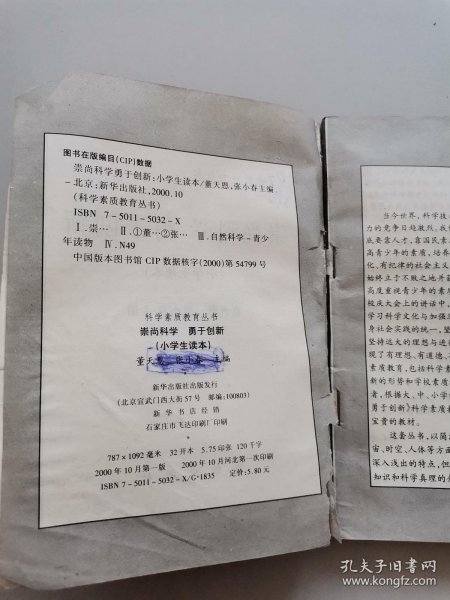 图书在版编目(CIP)数据
崇尚科学勇于创新:小学生读本/董天恩,张小春主编
-北京:新华出版社,2000.10
(科学素质教育丛书)
ISBN 7-5011-5032-X
Ⅰ.崇… Ⅱ.①董…②张… Ⅲ.自然科学-青少
年读物 Ⅳ.N49
中国版本图书馆CIP数据核字(2000)第54799号
科学素质教育丛书
崇尚科学 勇于创新
(小学生读本)
董天恩 张小春 主编
新华出版社出版发行
(北京宣武门西大街57号 邮编:100803)
新华书店经销
石家庄市飞达印刷厂印刷
787×1092毫米 32开本 5.75印张 120千字
2000年10月第一版 2000年10月河北第一次印刷
ISBN 7-5011-5032-X/G·1835 定价:5.80元
当今世界,科学技
力的竞争日趋激烈。我
底要靠人才,靠国民素
高青少年的素质,培养
化、有纪律的社会主义
始终立于不败之地并
高度重视青少年的素
校庆大会上的讲话中,
学习科学文化与加强
身社会实践的统一,坚
坚持远大的理想与进
现了有理想、有道德、
素质教育,包括科学素
新的形势和学校素质
者,根据大、中、小学
勇于创新》科学素质教
宝贵的教材。
这套丛书,以简
宙、时空、人体等方面
深入浅出的特点,但
知识和科学真理的
孔夫子旧书网
www.kongfz.com